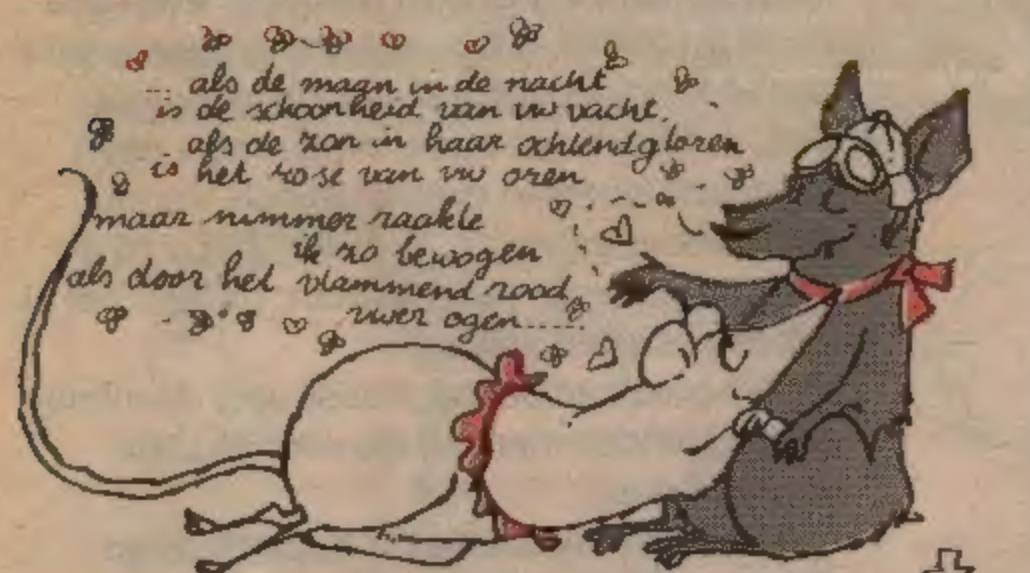 ... als de maan in de nacht
is de schoonheid van uw vacht.
... als de zon in haar ochtendgloren
is het rose van uw oren
maar nimmer raakte
ik zo bewogen
als door het vlammend rood
uwer ogen......